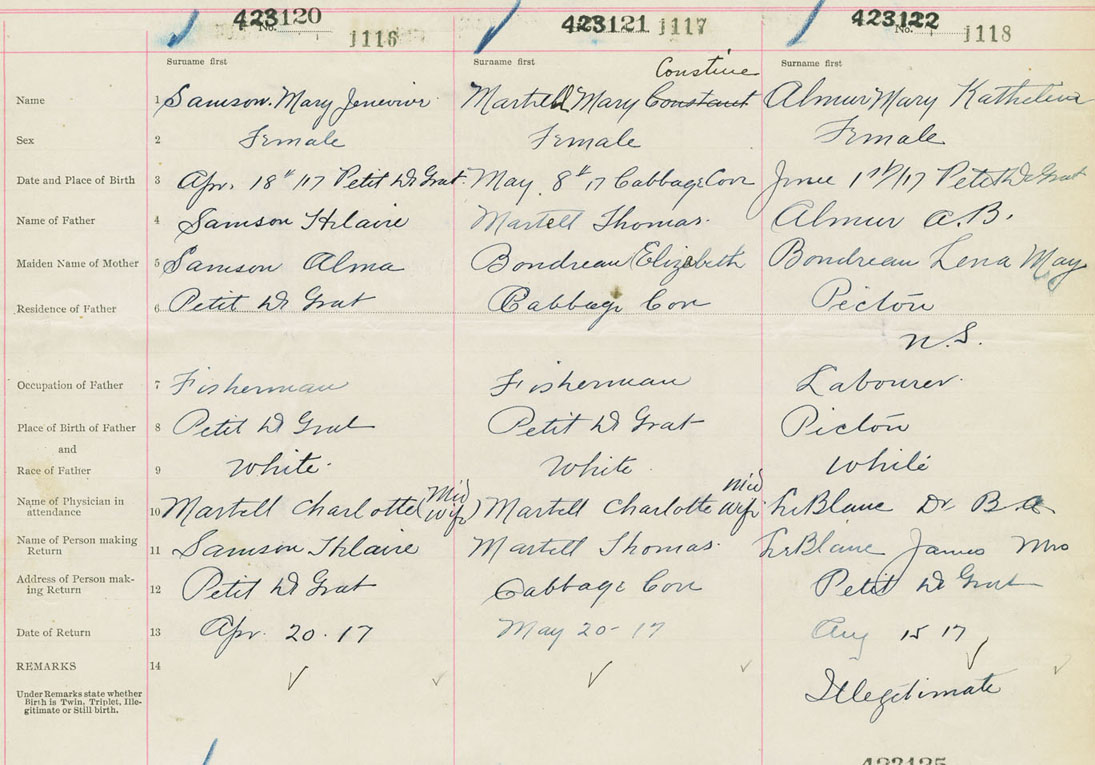 423120 423121 423122
No. 1116 1117 No. 1118
Surname first Surname first Surname first
Constine
Name 1 Samson. Mary Jenevive Martell Mary Constant Almur Mary Kathelina
Sex 2 Female Female Female
Date and Place of Birth 3 Apr. 18" 17 Petit De Grat May 8" 17 Cabbage Cove June 1st/17 Petit De Grat
Name of Father 4 Samson Hilaire Martell Thomas Almur A.B.
Maiden Name of Mother 5 Samson Alma Bondreau Elizabeth Bondreau Lena May
Residence of Father 6 Petit De Grat Cabbage Cove Pictou
N.S.
Occupation of Father 7 Fisherman Fisherman Labourer
Place of Birth of Father 8 Petit De Grat Petit De Grat Pictou
and
Race of Father 9 White White White
Name of Physician in
attendance 10 Martell Charlotte (Mid Wife) Martell Charlotte Mid Wife LeBlanc Dr B.A
Name of Person making
Return 11 Samson Hilaire Martell Thomas LeBlanc James Mrs
Address of Person mak-
ing Return 12 Petit De Grat Cabbage Cove Petit De Grat
Date of Return 13 Apr. 20. 17 May 20-17 Aug 15 17
REMARKS 14
Under Remarks state whether
Birth is Twin, Triplet, Ille-
gitimate or Still birth. Illegitimate